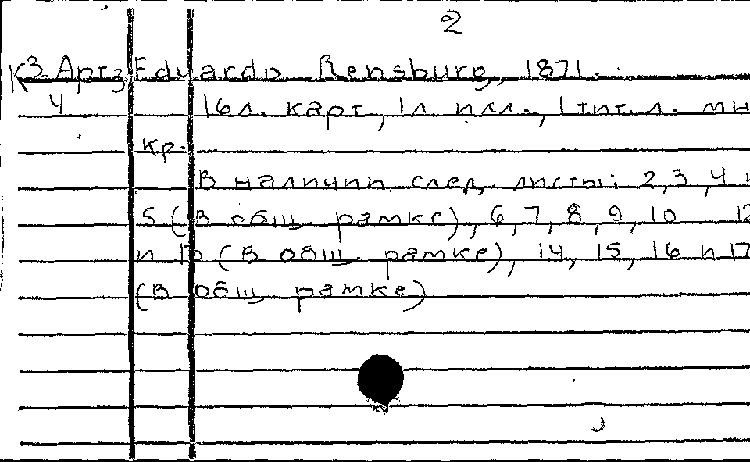 2
К3 Арг3 Eduardo Rensburg, 1871.
4 16л. карт, 1л. илл., 1 тит. л. мн
кр.
В наличии след. листы: 2, 3, 4 и
5 (в общ. рамке), 6, 7, 8, 9, 10 12
и 13 (в общ. рамке), 14, 15, 16 и 17
(в общ. рамке)